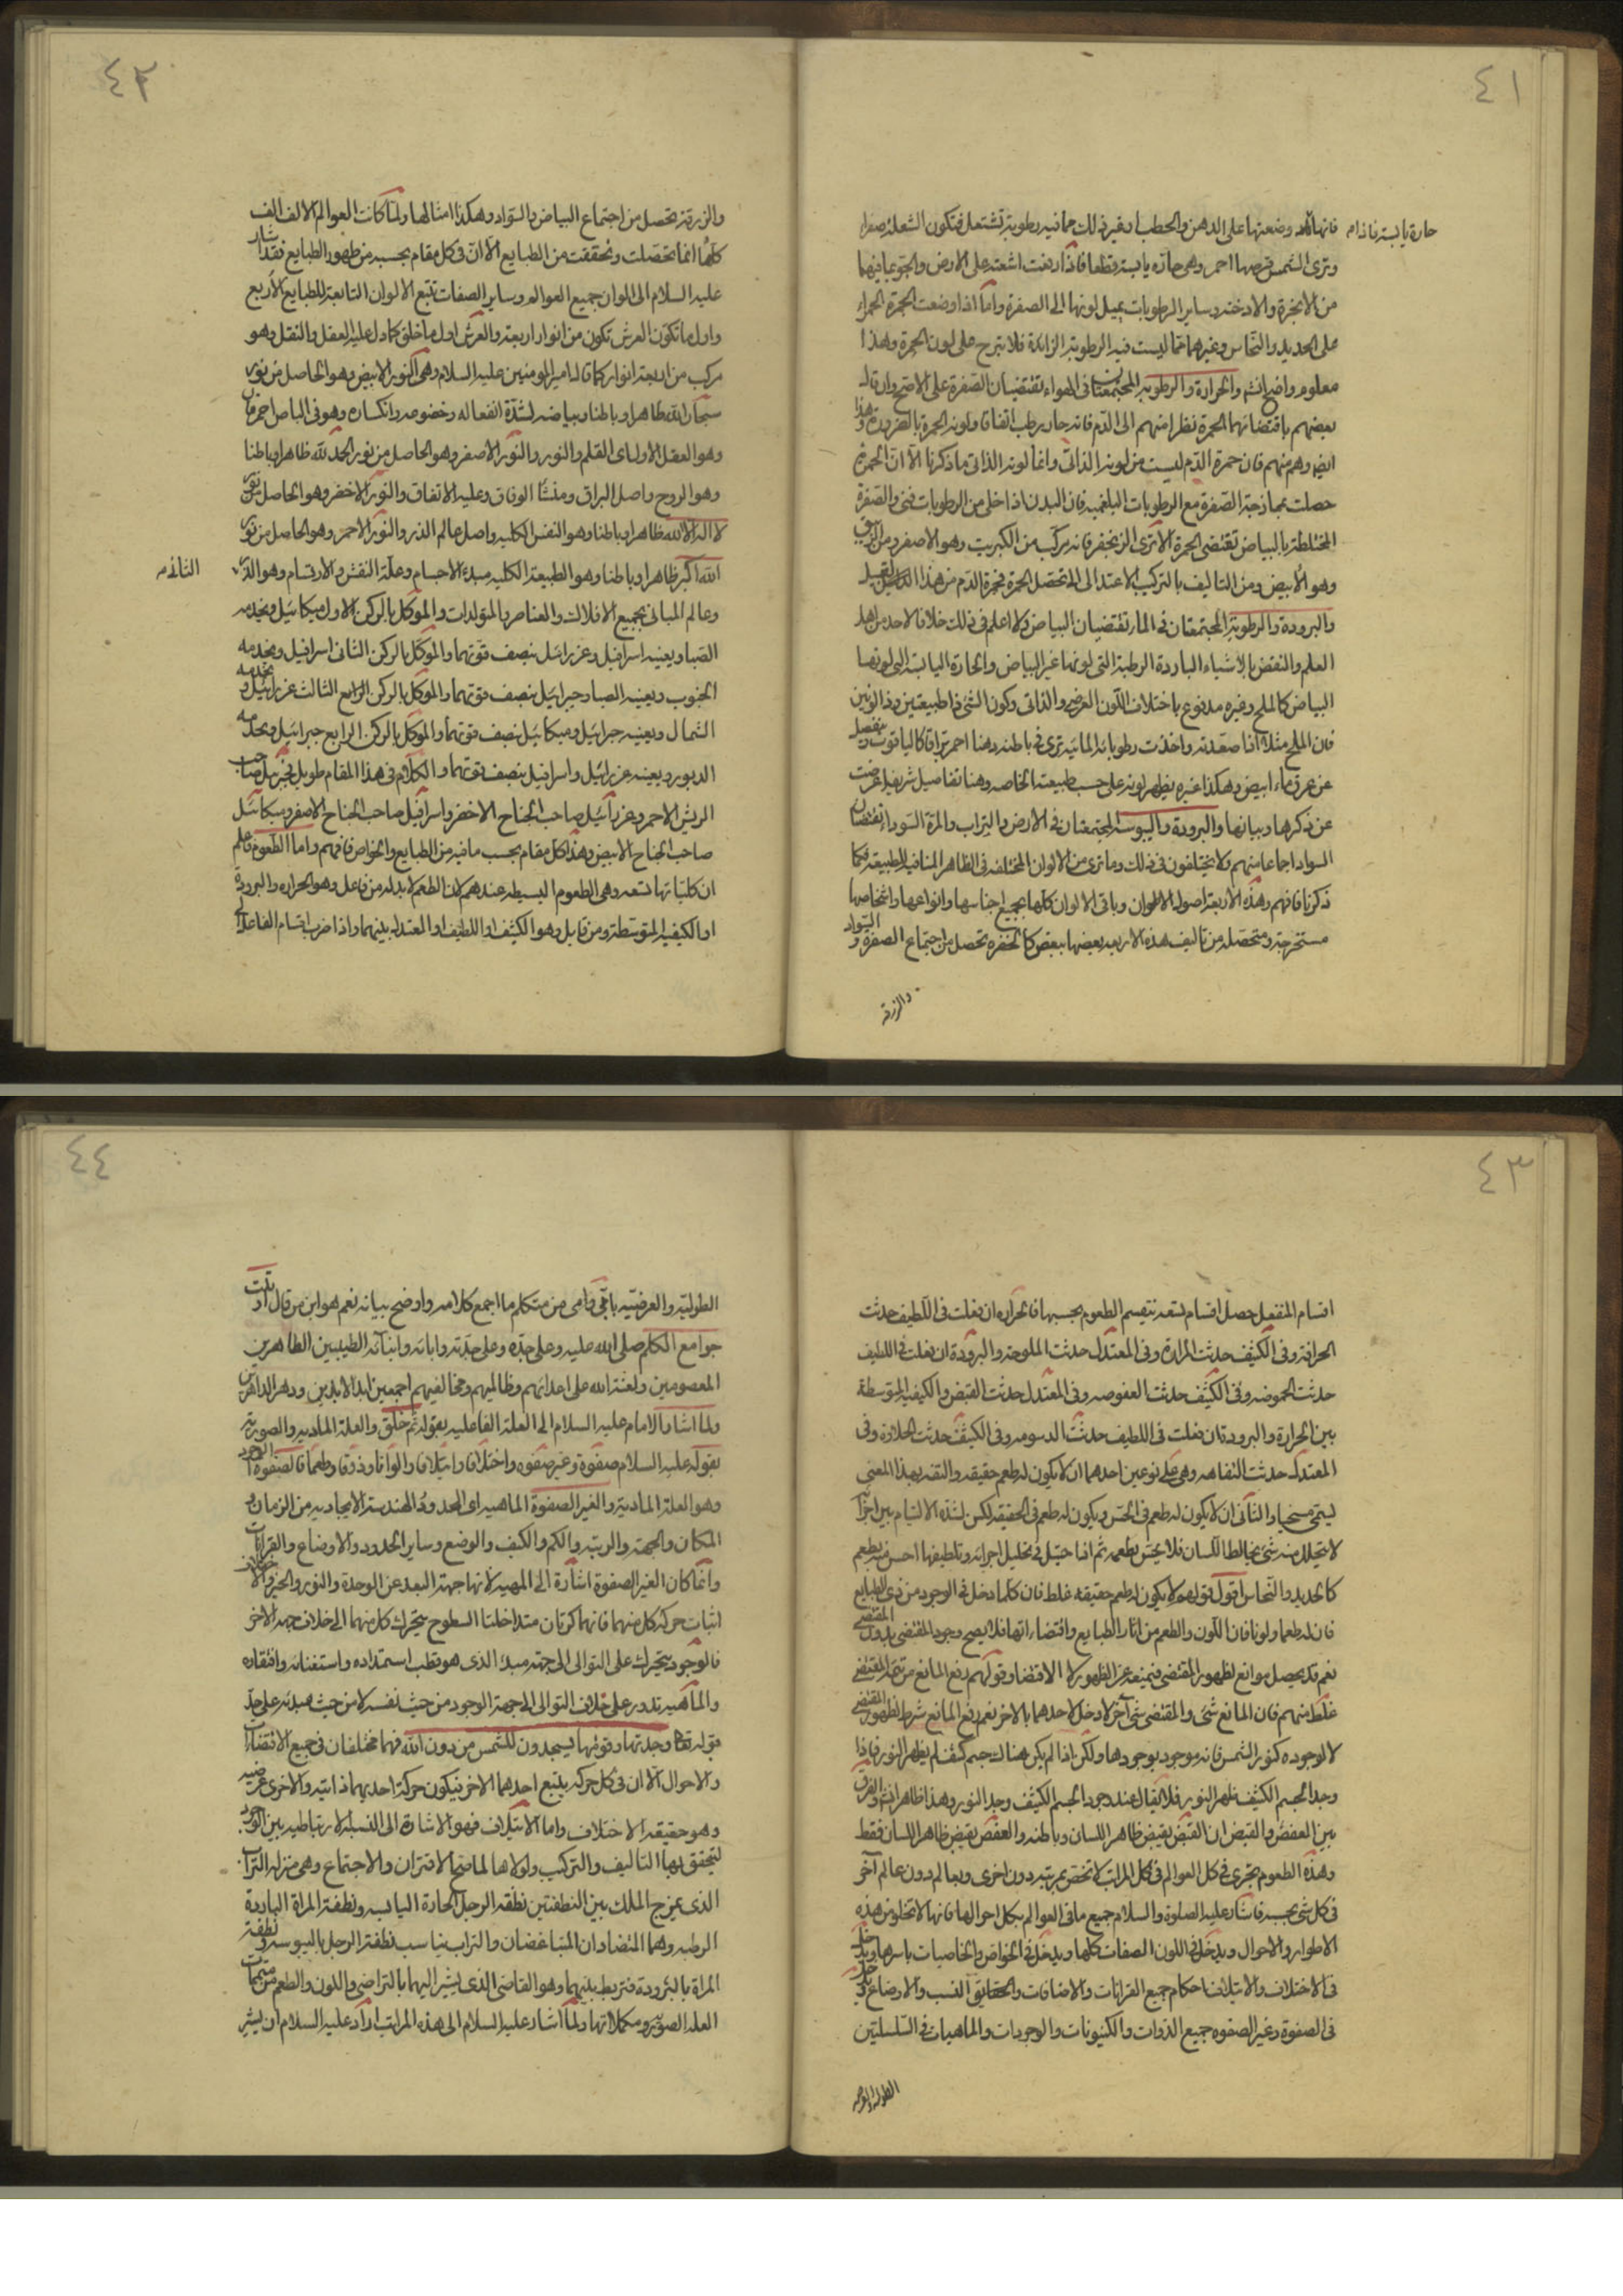 ٤١
حارة يابسة فاذا م
فانها وضعتها على الدهن والحطب وغير ذلك مما فيه رطوبة تشتعل فتكون الشعلة صفراء
وترى الشمس قرصها احمر وهي حارة يابسة قطعا فاذا وقعت اشعته على الارض والجو بما فيهما
من الابخرة والادخنة وساير الرطوبات يميل لونها الى الصفرة واما اذا وضعت الجمرة الحمراء
على الحديد والنحاس وغيرهما مما ليست فيه الرطوبة الزايدة فلا تبرح على لون الحمرة وهذا
معلوم واضح انشاء والحرارة والرطوبة المجتمعتان في الهواء تقتضيان الصفرة على الاصح وان قال
بعضهم باقتضائهما الحمرة نظرا منهم الى الدم فانه حار رطب اتفاقا ولونه الحمرة بالضرورة وهذا
ايضا وهم منهم فان حمرة الدم ليست من لونه الذاتي وانما لونه الذاتي ما ذكرنا الا ان الحمرة
حصلت بممازجة الصفرة مع الرطوبات البلغمية فان البدن اذا خلى من الرطوبات فنى والصفرة
المختلطة بالبياض تقتضى الحمرة الا ترى الزنجفر فانه مركب من الكبريت وهو الاصفر ومن الزيبق
وهو الابيض ومن التاليف بالتركيب الاعتدالى تحصل الحمرة فحمرة الدم من هذا القبيل
والبرودة والرطوبة المجتمعتان في الماء تقتضيان البياض ولا اعلم في ذلك خلافا لاحد من اهل
العلم والنقض بالاشياء الباردة الرطبة التى لونها غير البياض والحارة اليابسة التى لونها
البياض كالملح وغيره مدفوع باختلاف اللون العرضى والذاتى وكون الشئ ذا طبيعتين وذا لونين
فان الملح مثلا اذا صعدته واخذت رطوباته المائية ترى في باطنه دهنا احمر براقا كالياقوت وينفصل
عن عرق ماء ابيض وهكذا غيره يظهر لونه على حسب طبيعته الخاصة وهنا تفاصيل شريفة اعرضت
عن ذكرها وبيانها والبرودة واليبوسة المجتمعتان في الارض والتراب والمرة السوداء تقتضيان
السواد اجماعا منهم ولا يختلفون في ذلك وما ترى من الالوان المختلفة في الظاهر المنافية للطبيعة فكما
ذكرنا فافهم وهذه الاربعة اصول الالوان وباقى الالوان كلها بجميع اجناسها وانواعها واشخاصها
مستخرجة ومتحصلة من تاليف هذه الاربعة بعضها ببعض كالخضرة تحصل من اجتماع الصفرة والسواد
والزرقة
٤٢
والزرقة تحصل من اجتماع البياض والسواد وهكذا امثالها ولما كانت العوالم الالف الف
كلها انما تحصلت وتحققت من الطبايع الا ان في كل مقام بحسبه من ظهور الطبايع فقد اشار
عليه السلام الى الوان جميع العوالم وساير الصفات تتبع الالوان التابعة للطبايع الاربع
واول ما تكون العرش تكون من انوار اربعة والعرش اول ما خلق كما دل عليه العقل والنقل وهو
مركب من اربعة انوار كما قال امير المومنين عليه السلام وهى النور الابيض وهو الحاصل من نور
سبحان الله ظاهرا وباطنا وبياضه لشدة انفعاله وخضوعه وانكساره وهو في الباطن احمر
وهو العقل الاول اى القلم والنور والنور الاصفر وهو الحاصل من نور الحمد لله ظاهرا وباطنا
وهو الروح واصل البراق ومنشا الوفاق وعليه الاتفاق والنور الاخضر وهو الحاصل من نور
لا اله الا الله ظاهرا وباطنا وهو النفس الكلية واصل عالم الذر والنور الاحمر وهو الحاصل من نور
الله اكبر ظاهرا وباطنا وهو الطبيعة الكلية مبدء الاجسام وعلة النقش والارتسام وهو الذر
الثانى م
وعالم المبانى بجميع الافلاك والعناصر والمتولدات والموكل بالركن الاول ميكائيل ويخدمه
الصبا ويعينه اسرافيل وعزرائيل بنصف قوتهما والموكل بالركن الثانى اسرافيل ويخدمه
الجنوب ويعينه الصبا وجبرائيل بنصف قوتهما والموكل بالركن الثالث عزرائيل ويخدمه
الشمال ويعينه جبرائيل وميكائيل بنصف قوتهما والموكل بالركن الرابع جبرائيل ويخدمه
الدبور ويعينه عزرائيل واسرافيل بنصف قوتهما والكلام في هذا المقام طويل فجبرئيل صاحب
الريش الاحمر وعزرائيل صاحب الجناح الاخضر واسرافيل صاحب الجناح الاصفر وميكائيل
صاحب الجناح الابيض وهذا كل مقام بحسب ما فيه من الطبايع والخواص فافهم واما الطعوم فاعلم
ان كلياتها تسعة وهى الطعوم البسيطة عندهم لان الطعم لا بد له من فاعل وهو الحرارة والبرودة
او الكيفية المتوسطة ومن قابل وهو الكثيف او اللطيف او المعتدل بينهما واذا ضرب اقسام الفاعل
٤٣
اقسام المنفعل حصل اقسام تسعة تنقسم الطعوم بحسبها فالحرارة ان فعلت في اللطيف حدثت
الحرافة وفى الكثيف حدثت المرارة وفى المعتدل حدثت الملوحة والبرودة ان فعلت في اللطيف
حدثت الحموضة وفى الكثيف حدثت العفوصة وفى المعتدل حدثت القبض والكيفية المتوسطة
بين الحرارة والبرودة ان فعلت في اللطيف حدثت الدسومة وفى الكثيف حدثت الحلاوة وفى
المعتدل حدثت التفاهة وهى على نوعين احدهما ان لا يكون له طعم حقيقة والتفه بهذا المعنى
يسمى مسيخا والثانى ان لا يكون له طعم في الحس ويكون له طعم في الحقيقة لكن لشدة الالتيام بين اجزائه
لا يتحلل منه شئ يخالط اللسان فلا يحس بطعمه ثم اذا حيتل في تحليل اجزائه وتلطيفها احس منه بطعم
كالحديد والنحاس اقول قولهم لا يكون له طعم حقيقة غلط فان كلما دخل في الوجود من ذى الطبايع
فان له طعما ولونا فان اللون والطعم من اثار الطبايع واقتضاءاتها فلا يصح وجود المقتضى بدون المقتضى
نعم قد يحصل موانع لظهور المقتضى فتمنعه عن الظهور لا الاقتضاء وقولهم رفع المانع من تتمة المقتضى
غلط منهم فان المانع شئ والمقتضى شئ آخر لا دخل لاحدهما بالاخر نعم رفع المانع شرط لظهور المقتضى
لا لوجوده كنور الشمس فانه موجود بوجودها ولكن اذا لم يكن هناك جسم كثيف لم يظهر النور فاذا
وجد الجسم الكثيف ظهر النور فلا يقال عند وجود الجسم الكثيف وجد النور وهذا ظاهر انشاء والفرق
بين العفص والقبض ان القبض يقبض ظاهر اللسان وباطنه والعفص يقبض ظاهر اللسان فقط
وهذه الطعوم تجرى في كل العوالم في كل المراتب لا تختص بمرتبة دون اخرى وبعالم دون عالم آخر
في كل شئ بحسبه فاشار عليه الصلوة والسلام جميع ما في العوالم بكل احوالها فانها لا تخلو من هذه
الاطوار والاحوال ويدخل في اللون الصفات كلها ويدخل في الخواص والخاصيات باسرها ويدخل
في الاختلاف والايتلاف احكام جميع القرانات والاضافات والحقايق النسب والاوضاع ويدخل
في الصفوة وغير الصفوة جميع الذوات والكينونات والوجودات والماهيات في السلسلتين
الطولية والعرضية
٤٤
الطولية والعرضية بابى وامى من متكلم ما اجمع كلامه واوضح بيانه نعم هو ابن من قال اوتيت
جوامع الكلم صلى الله عليه وعلى جده وعلى جدته وابائه وابنائه الطيبين الطاهرين
المعصومين ولعنة الله على اعدائهم وظالميهم ومخالفيهم اجمعين ابد الابدين ودهر الداهرين
ولما اشار الامام عليه السلام الى العلة الفاعلية بقوله ثم خلق والعلة المادية والصورية
بقوله عليه السلام صفوة وغير صفوة واختلافا وايتلافا والوانا وذوقا وطعما فالصفوة الوجود
وهو العلة المادية والغير الصفوة الماهية اى الحدود الهندسة الايجادية من الزمان و
المكان والجهة والرتبة والكم والكيف والوضع وساير الحدود والاوضاع والقرانات
وانما كان الغير الصفوة اشارة الى المهية لانها جهة البعد عن الوحدة والنور والخير والاختلاف
اثبات حركة كل منهما فانهما كرتان متداخلتا السطوح يتحرك كل منهما الى خلاف جهة الاخر
فالوجود يتحرك على التوالى الى جهة مبدئه الذى هو قطب استمداده واستغنائه وافتقاره
والماهية تدور على خلاف التوالى الى جهة الوجود من حيث نفسه لا من حيث مبدئه على حد
قوله تعالى وجدتها وقومها يسجدون للشمس من دون الله فهما مختلفان في جميع الاقتضاءات
والاحوال الا ان في كل حركة يتبع احدهما الاخر فيكون حركة احديهما ذاتية والاخرى عرضية
وهو حقيقة الاختلاف واما الايتلاف فهو الاشارة الى النسبة الارتباطية بين الوجود
لتحقق بها التاليف والتركيب ولولاها لما صح الاقتران والاجتماع وهى منزلة التراب
الذى يمزج الملك بين النطفتين نطفة الرجل الحارة اليابسة ونطفة المراة الباردة
الرطبة وهما المتضادان المتباغضان والتراب يناسب نطفة الرجل باليبوسة ونطفة
المراة بالبرودة فتربط بينهما وهو القاضى الذى يشير اليهما بالتراضى واللون والطعم من متممات
العلة الصورية ومكملاتها ولما اشار عليه السلام الى هذه المراتب اراد عليه السلام ان يشير